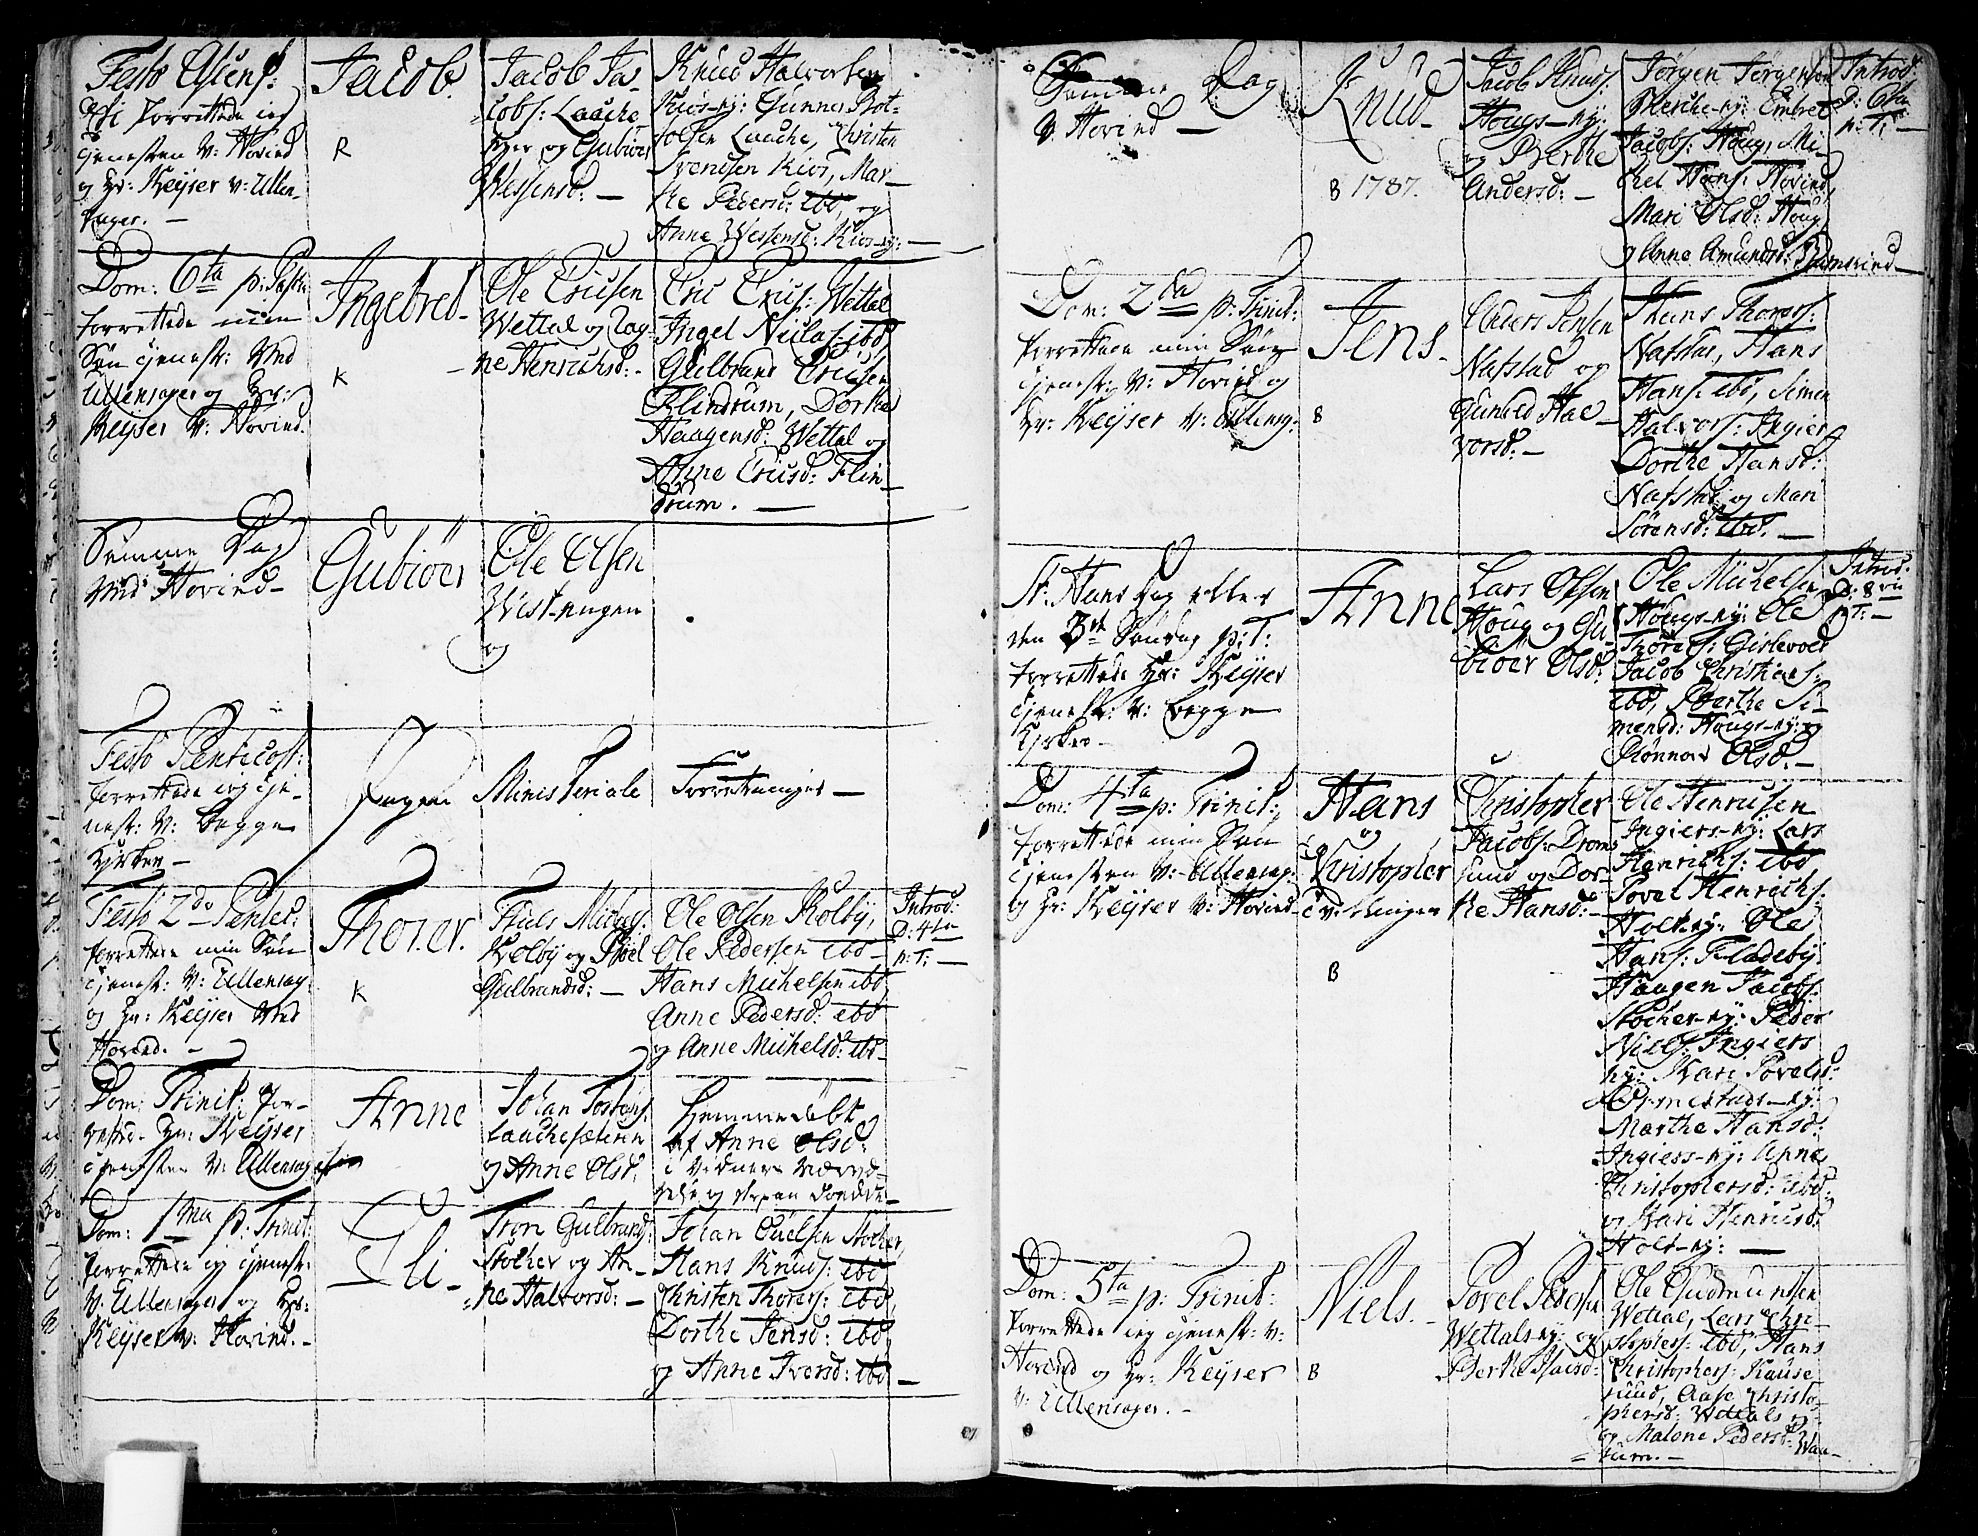 Festo Ascens:
forrettede ieg
Tjenesten v: Hovind
og Hr: Keyser v: Ullen-
sager. —
Jacob.
R
Jacob Ja-
cobs: Laache
og Gubiør
Wessensd: —
Knud Halvorsen
Kios-ey: Gunner Bot-
tolfsen Laache, Christen
Svendsen Kios, Mar-
the Pedersd: ibd, og
Anne Wessensd: Kios-ey: —
Dom: 6ta p: Pascha
forrettede min
Søn Tjenest: ved
Ullensager og Hr:
Keyser v: Hovind.
Ingebret.
K
Ole Ericsen
Wettal og Dag-
ne Henrichsd: -
Eric Erics: Wettal
Ingel Niclas: ibd,
Gulbrand Ericsen
Flindrum, Dorthe
Haagensd: Wettal og
Anne Ericsd: Flin-
drum. —
Samme Dag
ved Hovind —
Gubiøer
Ole Olsen
og
Festo Penticost:
forrettede ieg Tje-
nest: v: begge
Kirker —
Ingen
Ministeriale
Forretninger —
Festo 2do Pentec:
forrettede min Søn
Tjenest: v: Ullensag:
og Hr: Keyser ved
Hovind. —
Thorer.
K
Niels Michels:
Kolby og
Gulbrandsd: —
Ole Olsen Kolby,
Ole Pedersen ibd
Hans Michelsen ibd,
Anne Pedersd: ibd
og Anne Michelsd: ibd
Introd:
D: 4ta
p: T: —
Dom: Trinit: for-
rettede Hr: Keyser
Tjenesten v: Ullensager
Anne
Johan Tostens:
Laachesæteren
og Anne Olsd:
Hjemmedøbt
af Anne Olsd:
i Vidners Nærvæ-
relse og
Dom: 1ma p: Trinit:
forrettede ieg Tjenest:
v: Ullensager og Hr:
Keyser v: Hovind. —
Eli —
Tron Gulbrands:
Stocher og An-
ne Halvorsd: —
Johan Choelsen Stocher,
Hans Knuds: ibd,
Christen Thorers: ibd,
Dorthe Jensd: ibd
og Anne Iversd: ibd —
Samme Dag
v: Hovind —
Knud —
B 1787.
Jacob Knuds:
Hougs-ey:
og Berthe
Andersd: —
Jørgen Jørgensen
ey: Embret
Jacobs: Houg, Mi-
chel Hans: Hovind,
Mari Olsd: Houg
og Anne Amundsd:
Introd:
D: 6ta
p: T: —
Dom: 2da p: Trinit:
forrettede min Søn
Tjenest: v: Hovind og
Hr: Keyser v: Ullensag:
Jens.
B
Anders Jensen
Nafstad og
Gunild Hal-
vorsd: —
Hans Thorers:
Nafstad, Hans
Hans: ibd, Simen
Halvors: Ingier
Dorthe Hansd:
Nafstad og Mari
Sørensd: ibd. —
St: Hans Dag eller
den 3die Søndag p: T:
forrettede Hr: Keyser
Tjenest: v: begge
Kirker —
Anne
Lars Olsen
Houg og Gu-
biøer Olsd:
Ole Michelsen
Hougs-ey: Ole
Thorers: Gislevoll
Jacob Christians:
ibd, Berthe Si-
mensd: Hougs-ey: og
Rønnov Olsd. —
Introd:
D: 8va
p: T: —
Dom: 4ta p: Trinit:
forrettede min Søn
Tjenesten v: Ullensag:
og Hr: Keyser v: Hovind
Hans
og
Christopher
B
Christopher
Jacobs: Drom-
sund og Dor-
the Hansd: —
Ole Henricsen
Ingiers-ey: Lars
Henrichs: ibd
Povel Henrichs:
Holt-ey: Ole
Hans: Fladeby
Haagen Jacobs:
Stocher-ey: Peder
Niels: Ingiers
ey: Kari Povelsd:
Ormestads-ey:
Marthe Hansd:
Ingiers-ey: Anne
Christophersd: ibd
og Kari Henricsd:
Holt-ey: —
Dom: 5ta p: Trinit:
forrettede ieg Tjenest: v:
Hovind og Hr: Keyser
v: Ullensager. —
Niels. —
B
Povel Pedersen
Wettals-ey: og
Berthe
Ole Gudmundsen
Wettal, Lars Chri-
stophers: ibd, Hans
Christophers: Kause-
ruud, Aase Christo-
phersd: Wettals
og Malene Pedersd: Wau-
rum. —